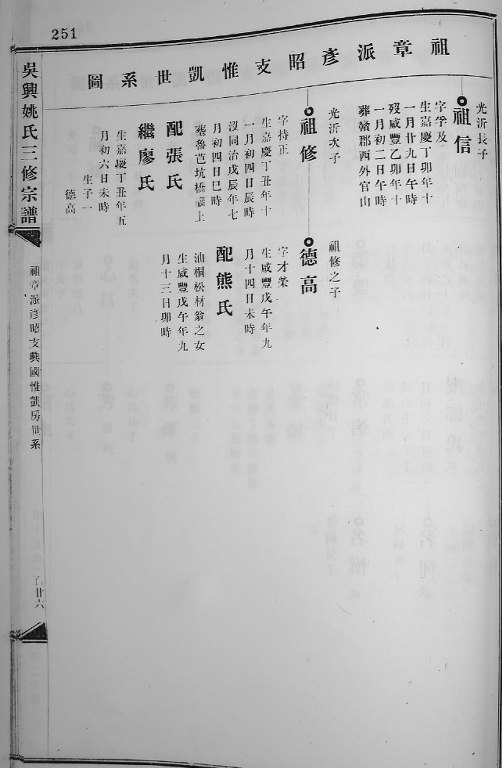 251
祖章派彥昭支惟凱世系圖
光沂長子
祖信
字孚及
生嘉慶丁卯年十
一月廿九日午時
歿咸豐乙卯年十
一月初二日午時
葬贛郡西外官山
光沂次子
祖修
字持正
生嘉慶丁丑年十
一月初四日辰時
沒同治戊辰年七
月初四日巳時
葬魯芭坑橋腦上
配張氏
繼廖氏
生嘉慶丁丑年五
月初六日未時
生子一
德高
祖修之子
德高
字才榮
生咸豐戊午年九
月十四日未時
配熊氏
油欄松材翁之女
生咸豐戊午年九
月十三日卯時
吳興姚氏三修宗譜
祖章派彥昭支興國惟凱房世系
廿六